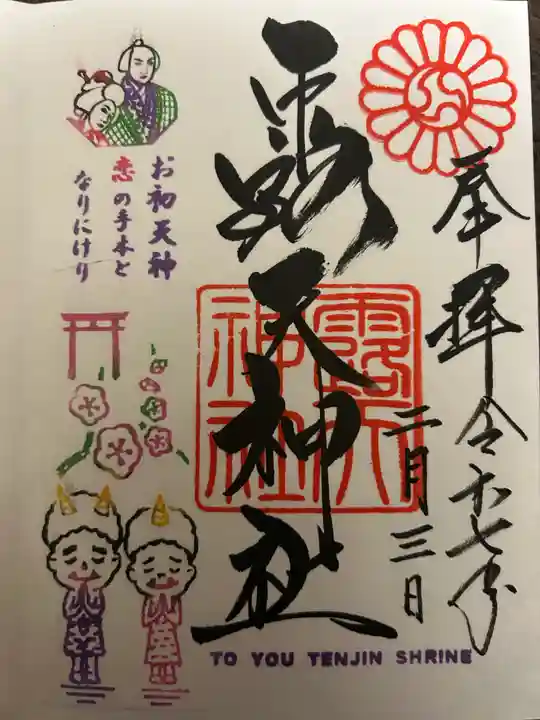 奉拝 令和七年
二月三日
露天神社
露天
神社
お初天神
恋の手本と
なりにけり
TO YOU TENJIN SHRINE